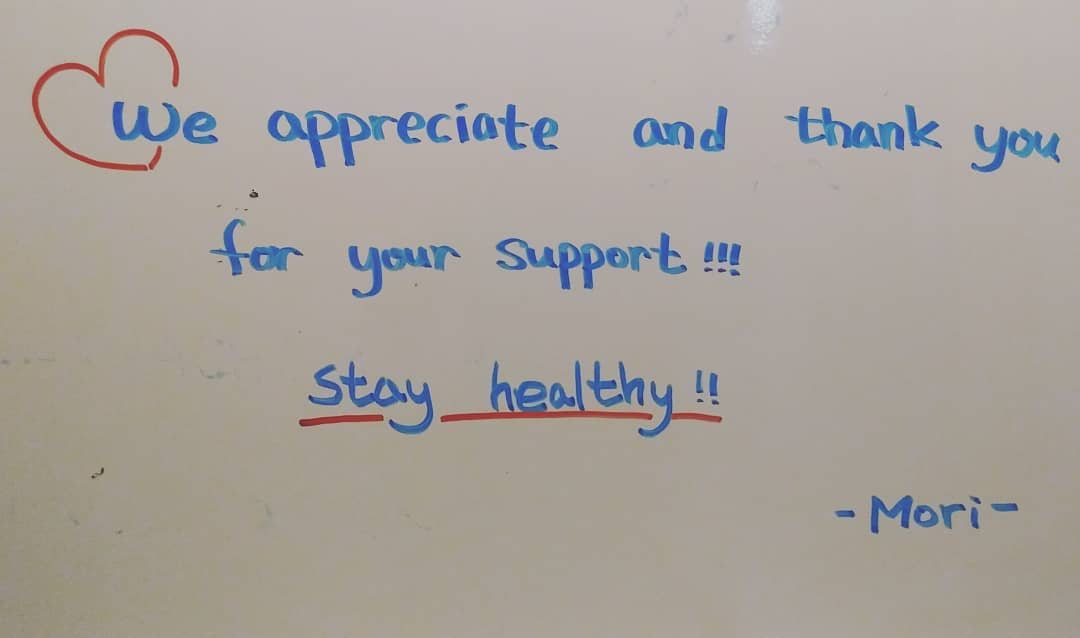 We appreciate and thank you
for your support!!!
stay healthy!!
-Mori-